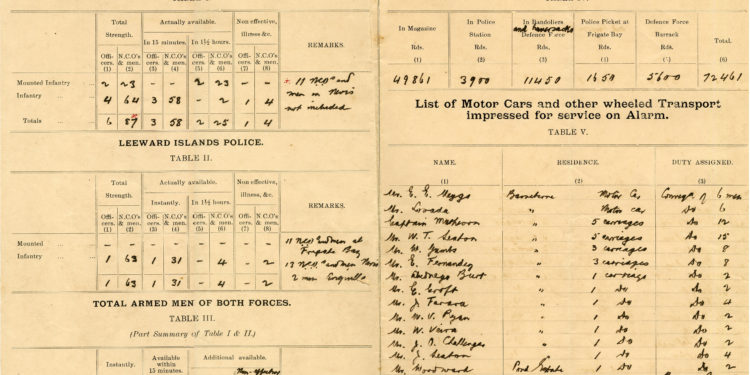 Total Strength. Actually available. Non effective, illness &c. REMARKS.
In 15 minutes. In 1½ hours.
Offi- cers. N.C.O's & men. Offi- cers. N.C.O's & men. Offi- cers. N.C.O's & men. Offi- cers. N.C.O's & men.
(1) (2) (3) (4) (5) (6) (7) (8)
Mounted Infantry ... 2 23 - - 2 23 - -
Infantry ... 4 64 3 58 - 2 1 4
Totals ... 6 87 3 58 2 25 1 4
+ 11 NCO's and
men in Nevis
not included
LEEWARD ISLANDS POLICE.
TABLE II.
Total Strength. Actually available. Non effective, illness, &c. REMARKS.
Instantly. In 1½ hours.
Offi- cers. N.C.O's & men. Offi- cers. N.C.O's & men. Offi- cers. N.C.O's & men. Offi- cers. N.C.O's & men.
(1) (2) (3) (4) (5) (6) (7) (8)
Mounted ... - - - - - - - -
Infantry ... 1 63 1 31 - 4 - 2
1 63 1 31 - 4 - 2
11 NCO's and men at
Frigate Bay
13 NCO's and men Nevis
2 men
TOTAL ARMED MEN OF BOTH FORCES.
TABLE III.
(Part Summary of Table I & II.)
Instantly. Available within 15 minutes. Additional available.
In Magazine In Police Station In Bandoliers and haversacks Defence Force Police Picket at Frigate Bay Defence Force Barrack Total.
Rds. Rds. Rds. Rds. Rds. Rds.
(1) (2) (3) (4) (5) (6)
49861 3900 11450 1650 5600 72461
List of Motor Cars and other wheeled Transport
impressed for service on Alarm.
TABLE V.
NAME. RESIDENCE. DUTY ASSIGNED.
(1) (2) (3)
Mr. E. E. Meggs Basseterre Motor Car Convey of 6 men
Mr. Losada " Motor car Do 6
Captain " 5 carriages Do 12
Mr. W. T. Seaton " 5 carriages Do 15
Mr. W. " 3 carriages Do 8
Mr. E. Fernandez " 3 carriages Do 8
Mr. Burt " 1 carriage Do 2
Mr. E. Croft " 1 Do Do 2
Mr. J. Farara " 1 Do Do 4
Mr. W. V. Ryan " 1 Do Do 2
Mr. W. Veira " 1 Do Do 2
Mr. J. O. Challenger " 1 Do Do 2
Mr. J. Seaton " 1 Do Do 4
Mr. Woodward Pond Estate 1 Do Do 2